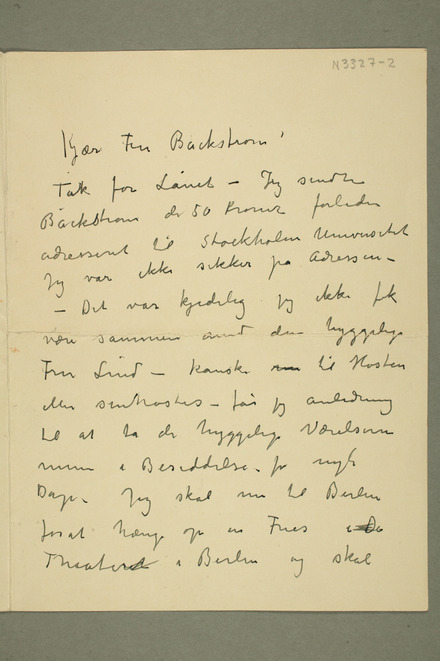 N3327-2
Kjær Fru Backstrøm!
Tak for Lånet – Jeg sendte
Backstrøm de 50 Kroner forleden
adresseret til Stockholm Universitet
Jeg var ikke sikker på Adressen –
– Det var kjedelig jeg ikke fik
være sammen med den hyggelige
Fru Lind – kanske til Høsten
eller senhøstes – får jeg anledning
til at ta de hyggelige Værelserne
mine i Besiddelse – for nogle
Dage. Jeg skal nu til Berlin
forat hænge op en Fries
Theater i Berlin og skal